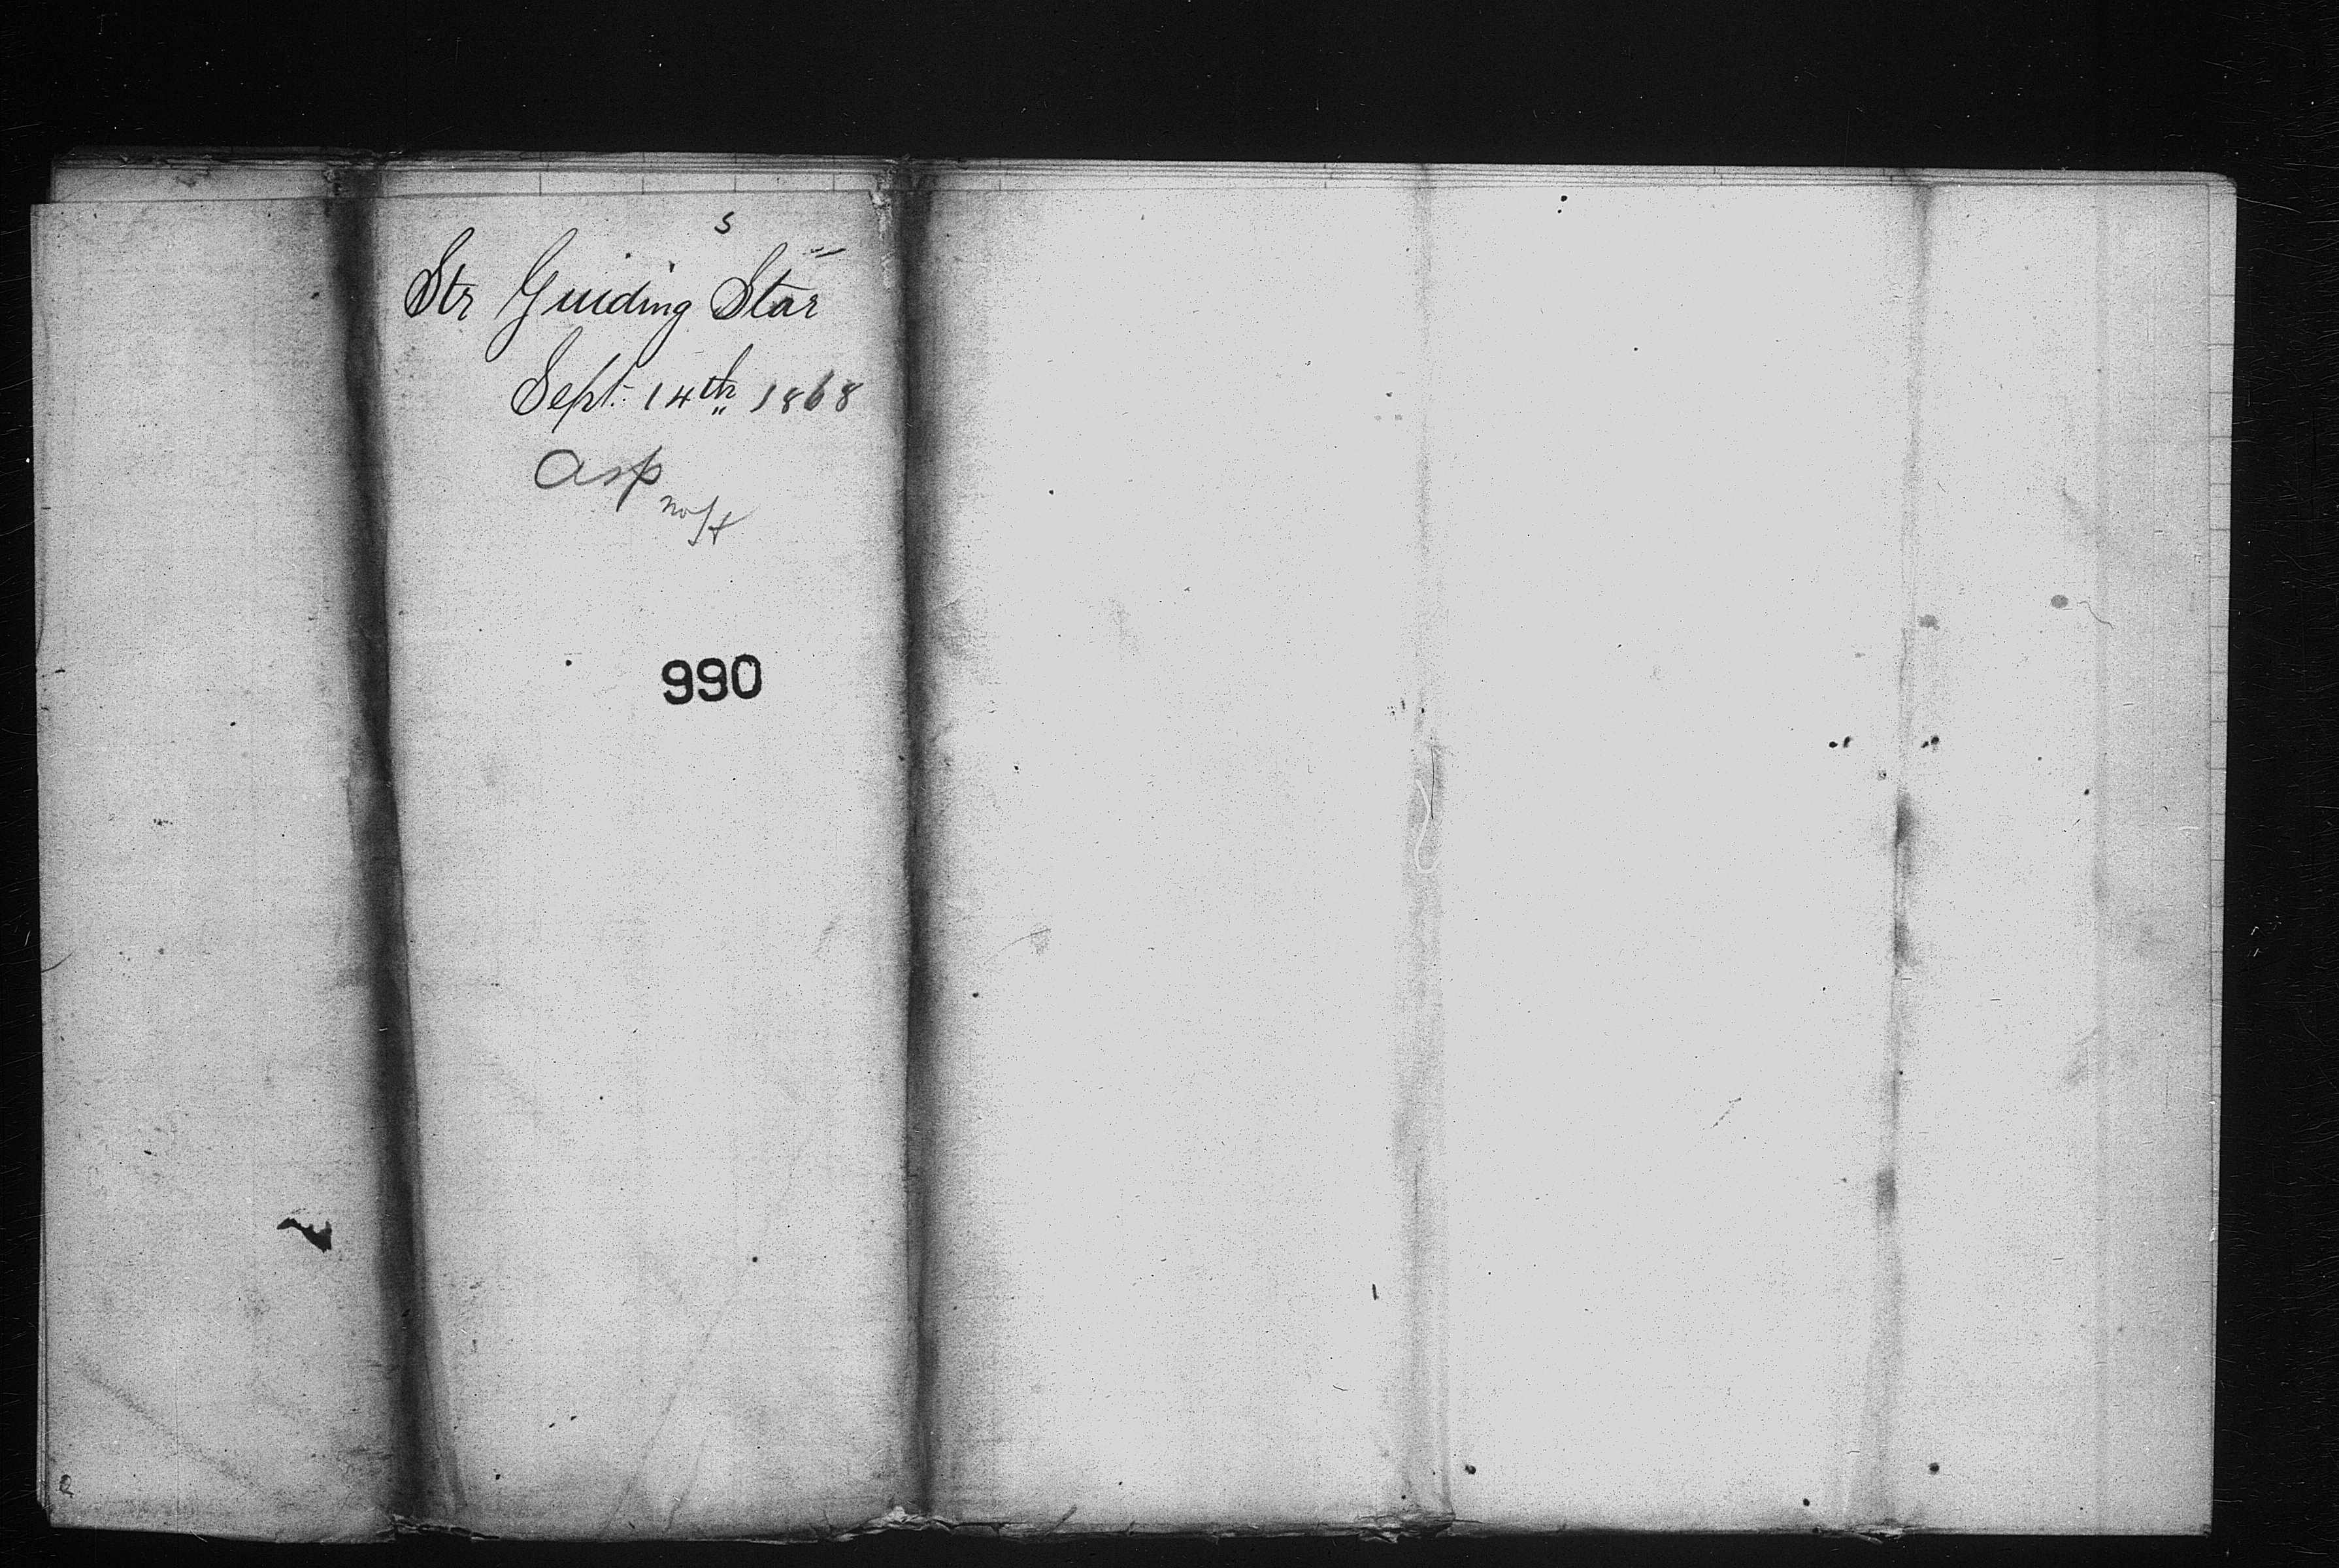 s
Str Guiding Star
Sept. 14th 1868
Asp
990